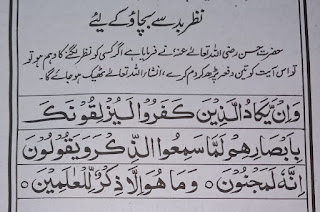 نظر بد سے بچاؤ کے لیٔے
حضرت حسن رضی اللہ تعالےٰ عنہٗ نے فرمایا ہے اگر کسی کو نظر لگنے کا وہم ہو تو
تو اس آیت کو تین دفعہ پڑھ کر دم کرے، انشاء اللہ تعالےٰ ٹھیک ہو جائے گا۔
وَاِنْ يَّكَادُ الَّذِيْنَ كَفَرُوْا لَيُزْلِقُوْنَكَ
بِاَبْصَارِهِمْ لَمَّا سَمِعُوا الذِّكْرَ وَيَقُوْلُوْنَ
اِنَّهٗ لَمَجْنُوْنٌ ○ وَمَا هُوَ اِلَّا ذِكْرٌ لِّلْعٰلَمِيْنَ ○